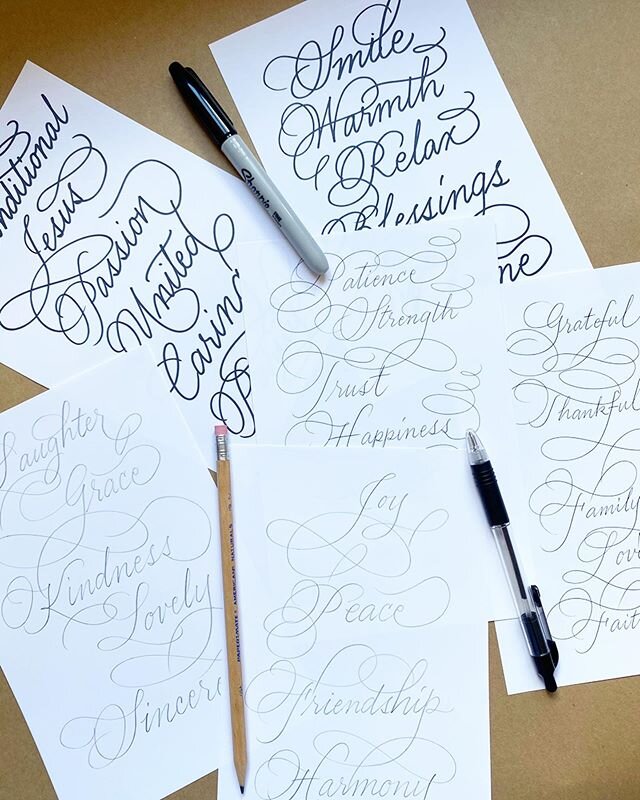 Smile
Warmth
Relax
Blessings
nditional
Jesus
Passion
United
Caring
Sharpie
Patience
Strength
Trust
Happiness
Grateful
Thankful
Family
Love
Faith
Laughter
Grace
Kindness
Lovely
Sincere
PAPERMATE AMERICAN NATURALS
Joy
Peace
Friendship
Harmony